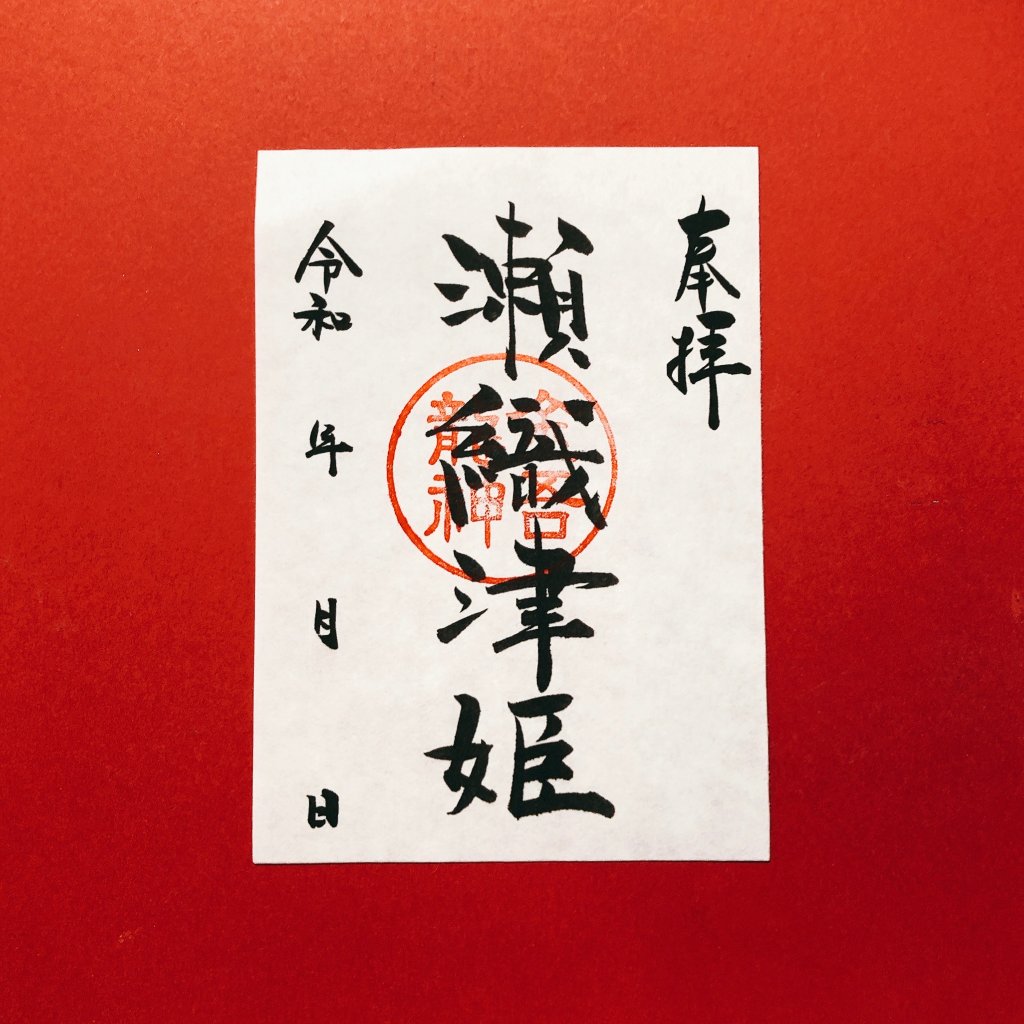 奉拝
瀬織津姫
龍神
令和 年 月 日